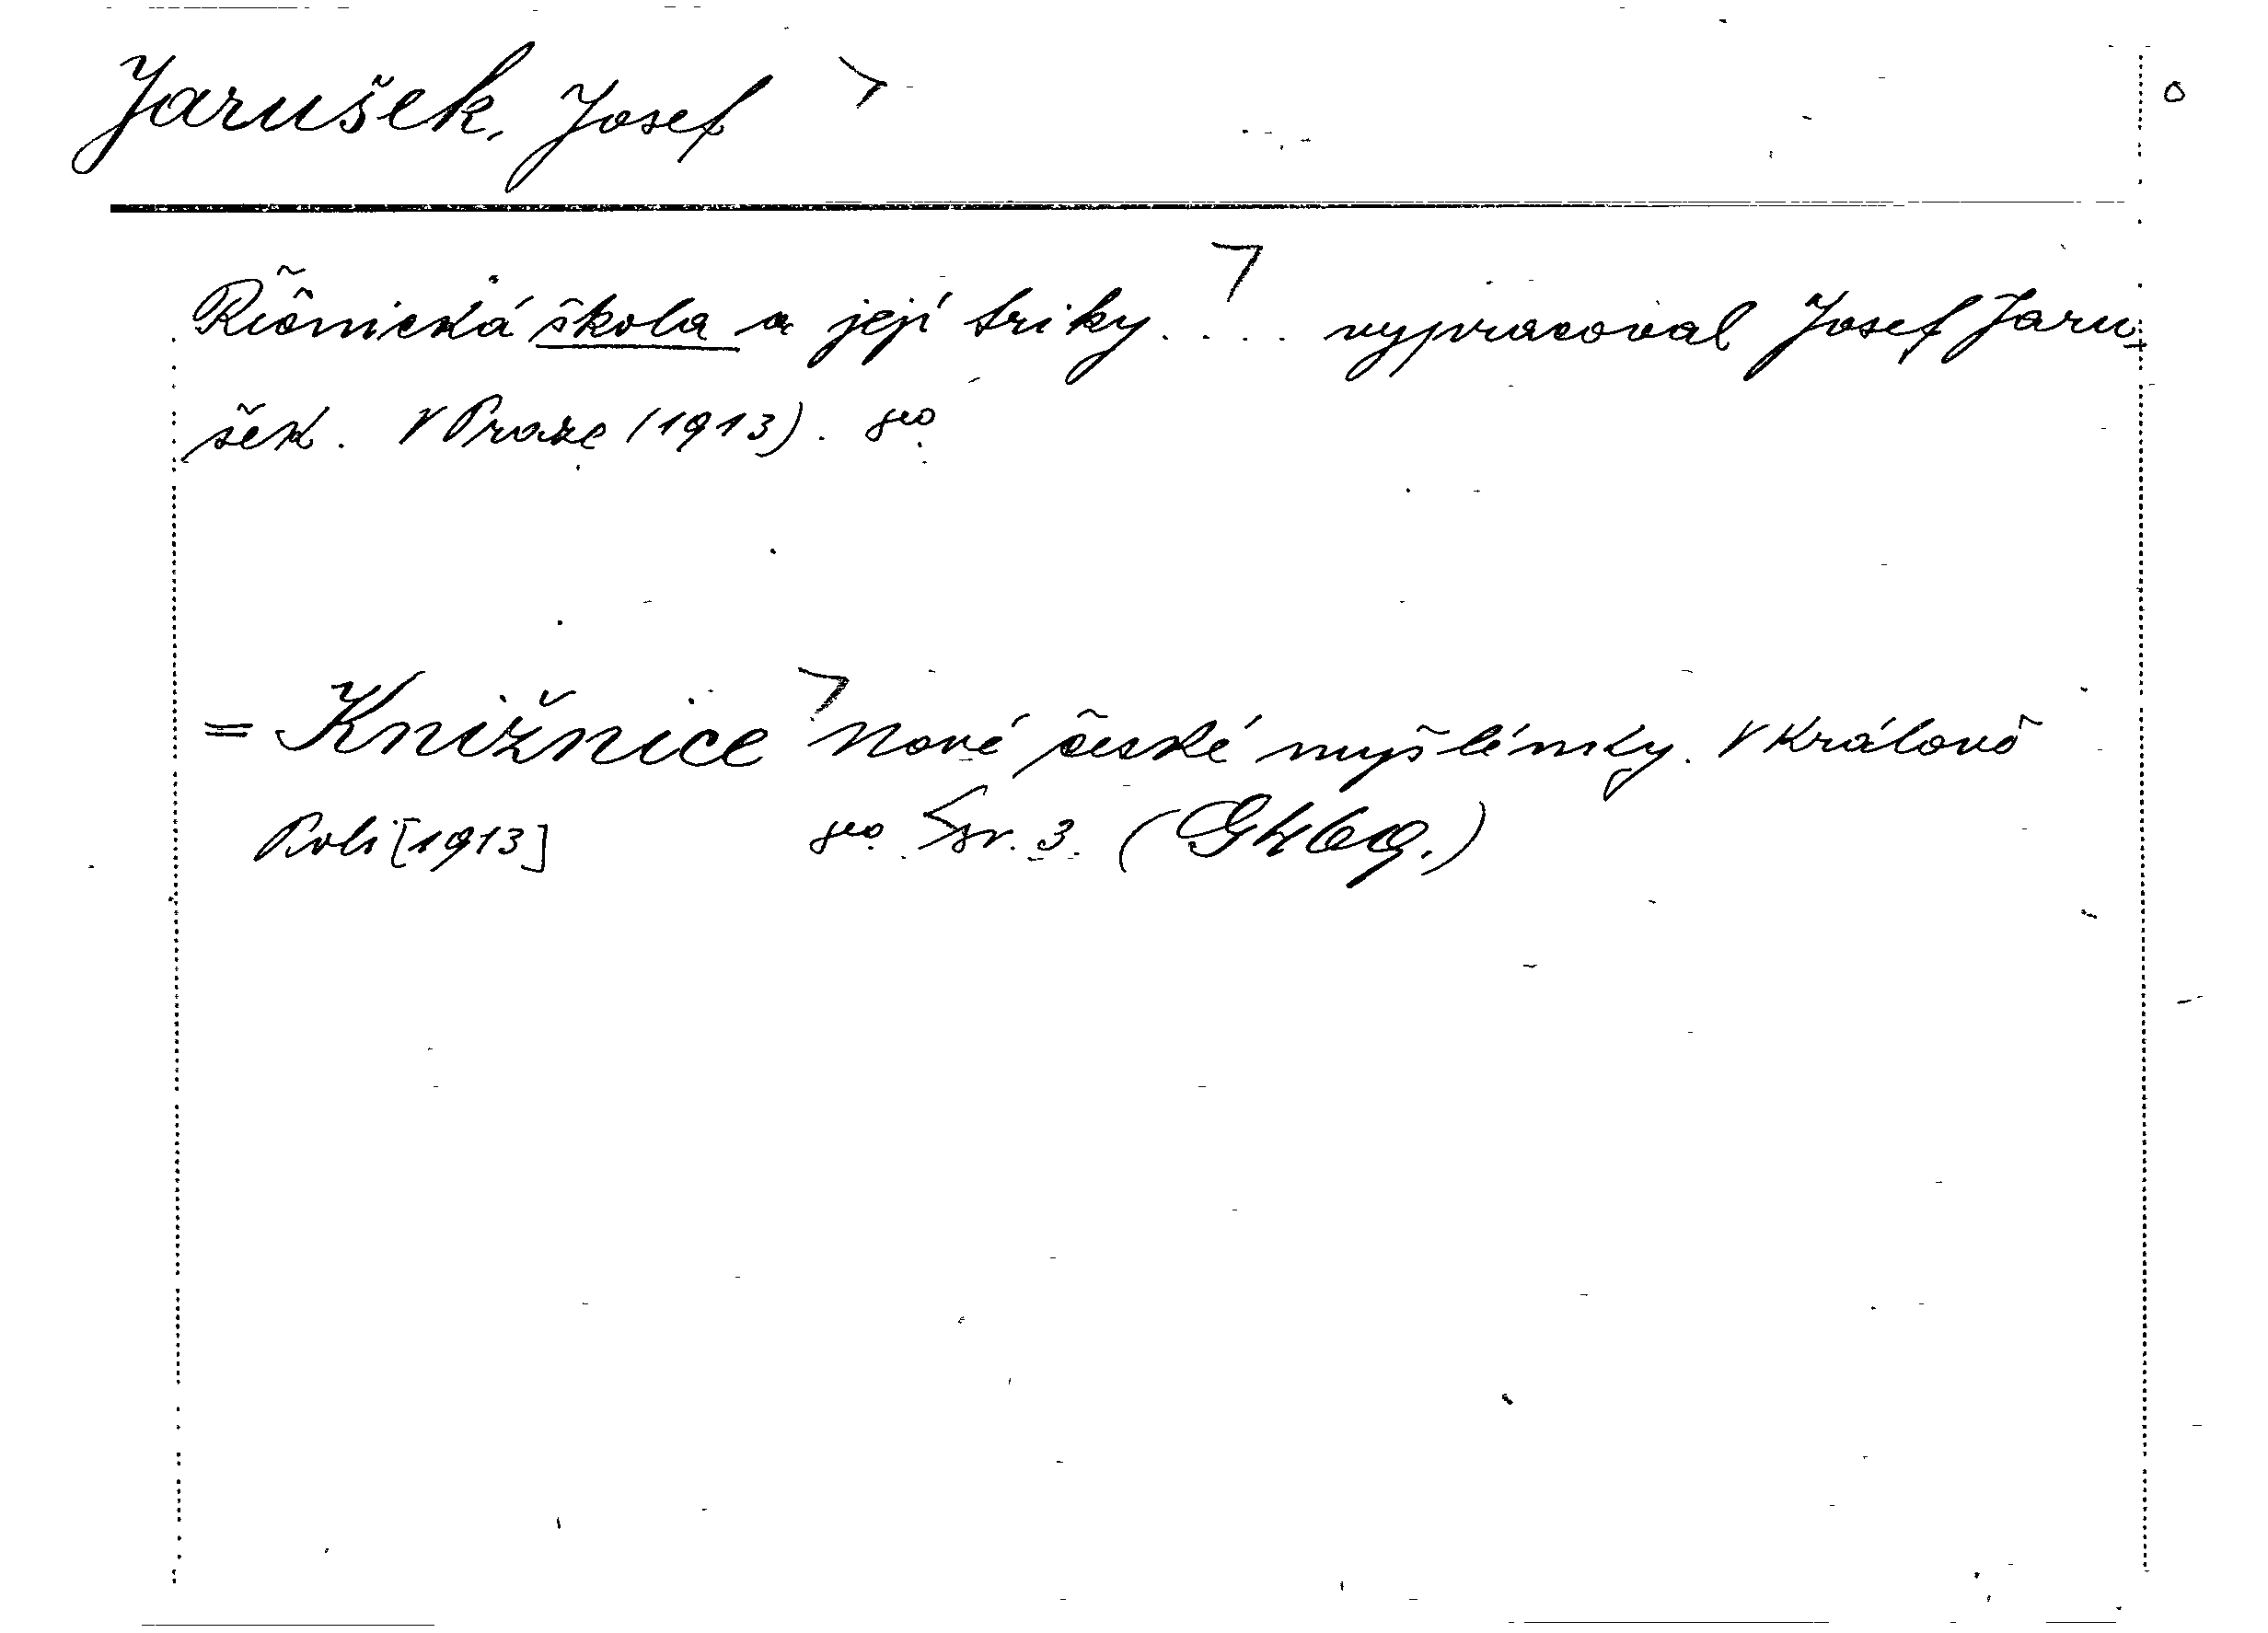 Jarušek, Josef
Řičnická škola a její triky.... vypracoval Josef Jaru-
šek. V Praze (1913). 8°
= Knižnice Nové české myšlénky. V Králově
Poli [1913] 8° sv. 3.